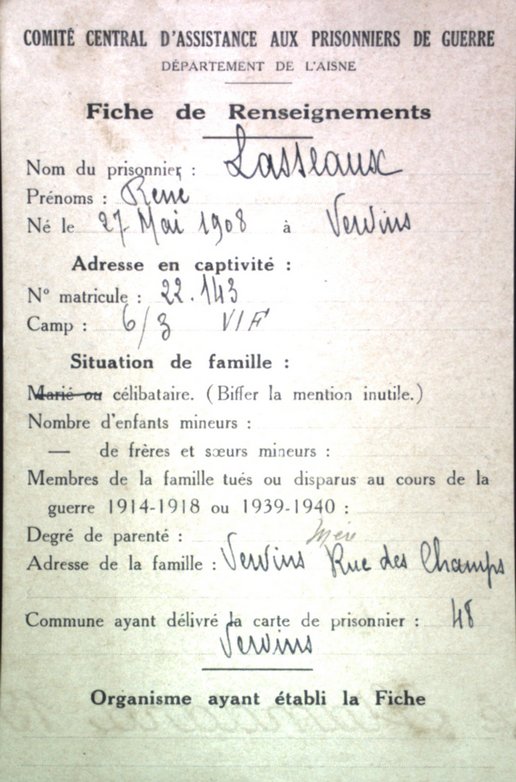 COMITÉ CENTRAL D'ASSISTANCE AUX PRISONNIERS DE GUERRE
DÉPARTEMENT DE L'AISNE
Fiche de Renseignements
Nom du prisonnier : Lasseaux
Prénoms : René
Né le 27 Mai 1908 à Vervins
Adresse en captivité :
N° matricule : 22.143
Camp : 6/3 VIF
Situation de famille :
Marié ou célibataire. (Biffer la mention inutile.)
Nombre d'enfants mineurs :
— de frères et sœurs mineurs :
Membres de la famille tués ou disparus au cours de la
guerre 1914-1918 ou 1939-1940 :
Degré de parenté : Mère
Adresse de la famille : Vervins Rue des Champs
48
Commune ayant délivré la carte de prisonnier :
Vervins
Organisme ayant établi la Fiche